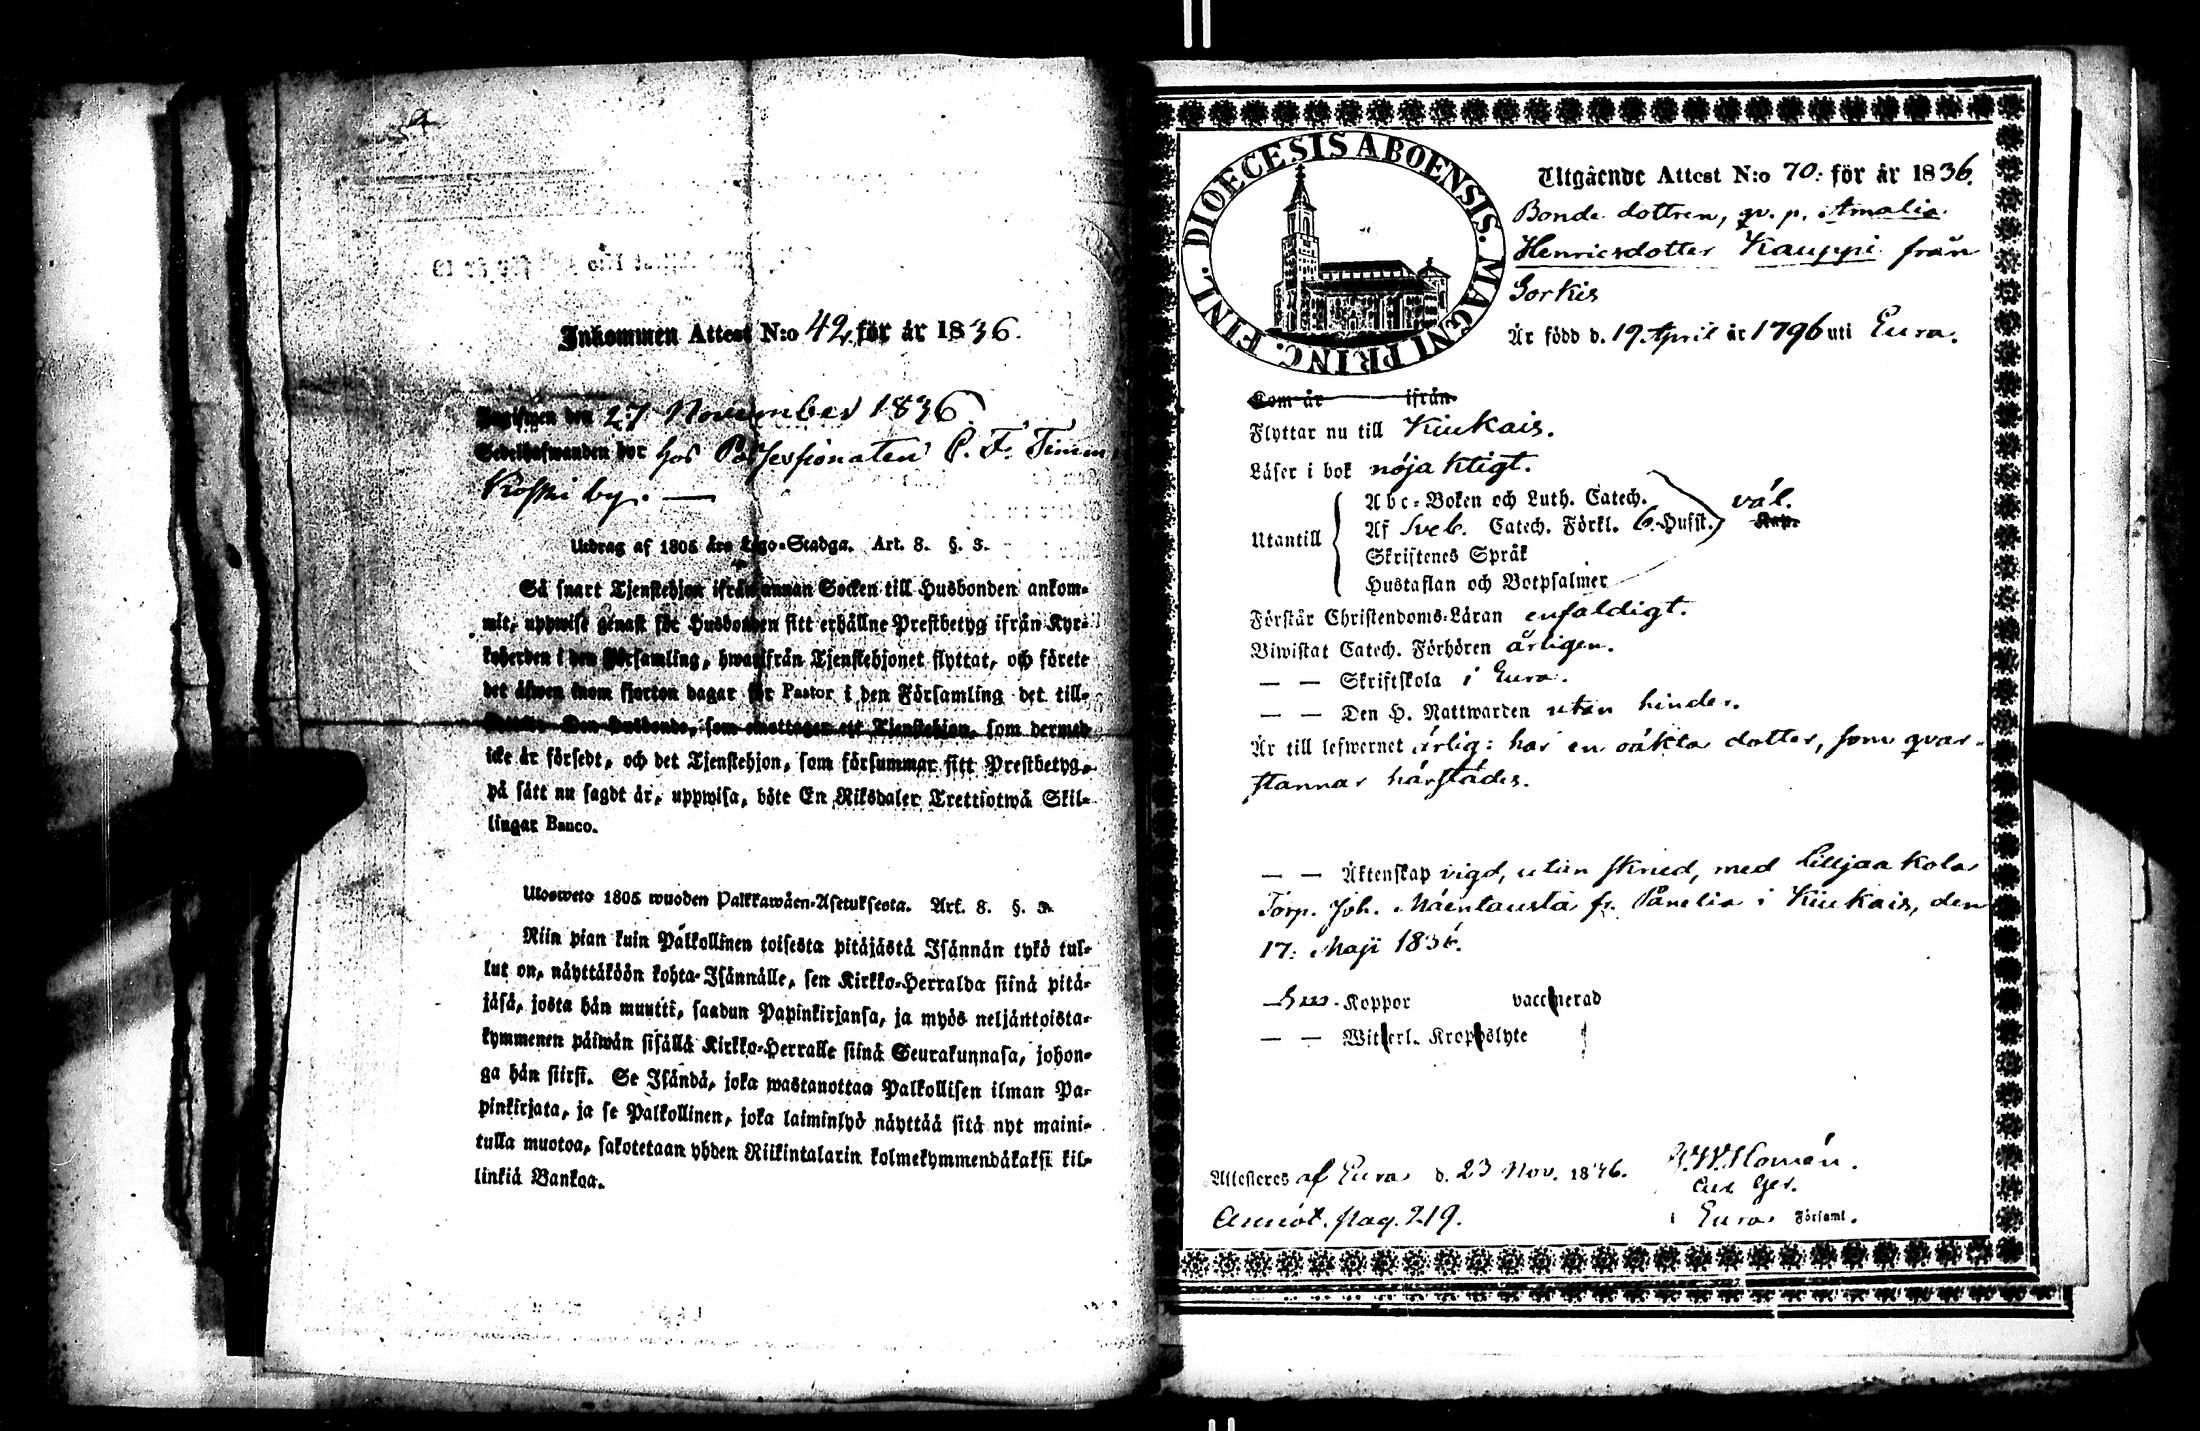 Inkommen Attest N:o 42. för år 1836.
Uppwisen den 27 November 1836
Sedelhafwanden bor hos Possessionaten C. F. Timm
Koski by. —
Utdrag af 1805 års Lego-Stadga. Art. 8. §. 3.
Så snart Tjenstehjon ifrån annan Socken till Husbonden ankom-
mit, uppwise genast för Husbonden sitt erhållne Prestbetyg ifrån Kyr-
koherden i den Församling, hwarifrån Tjenstehjonet flyttat, och förete
det äfwen inom fjorton dagar för Pastor i den Församling det till-
Den Husbonde, som emottager ett Tjenstehjon, som dermed
icke är försedt, och det Tjenstehjon, som försummar sitt Prestbetyg,
på sätt nu sagdt är, uppwisa, böte En Riksdaler Trettiotwå Skil-
lingar Banco.
Ulosweto 1805 wuoden Palkkawäen-Asetuksesta. Art. 8. §. 3.
Niin pian kuin Palkollinen toisesta pitäjästä Isännän tykö tul-
lut on, näyttäköön kohta Isännälle, sen Kirkko-Herralda siinä pitä-
jäsä, josta hän muutti, saadun Papinkirjansa, ja myös neljäntoista-
kymmenen päiwän sisällä Kirkko-Herralle siinä Seurakunnasa, johon-
ga hän siirsi. Se Isändä, joka wastanottaa Palkollisen ilman Pa-
pinkirjata, ja se Palkollinen, joka laiminlyö näyttää sitä nyt maini-
tulla muotoa, sakotetaan yhden Riikintalarin kolmekymmendäkaksi kil-
linkiä Bankoa.
DIOECESIS ABOENSIS. MAGNI PRINC. FINL.
Utgående Attest N:o 70: för år 1836.
Bonde dottren, qv. p. Amalia
Henricsdotter Kauppi från
Sorkis
Är född d. 19 April år 1796 uti Eura.
Kom år ifrån
Flyttar nu till Kiukais.
Läser i bok nöjaktigt.
Utantill
Abc-Boken och Luth. Catech.
Af Sveb. Catech. Förkl. 6. Hufst. väl.
Kap.
Skriftenes Språk
Hustaflan och Botpsalmer
Förstår Christendoms-Läran enfaldigt.
Biwistat Catech. Förhören årligen.
— — Skriftskola i Eura.
— — Den H. Nattwarden utan hinder.
Är till lefwernet ärlig: har en oäkta dotter, som qvar-
stannar härstädes.
— — Äktenskap vigd, utan sköld, med Lilljaakola
Torp. Joh. Mäentausta fr. Panelia i Kiukais, den
17: Maji 1836.
Koppor vaccinerad
— — Witterl. Kroppslyte
Attesteres af Eura d. 23 Nov. 1836.
Annot. pag. 219.
Homén.
i Eura Församl.